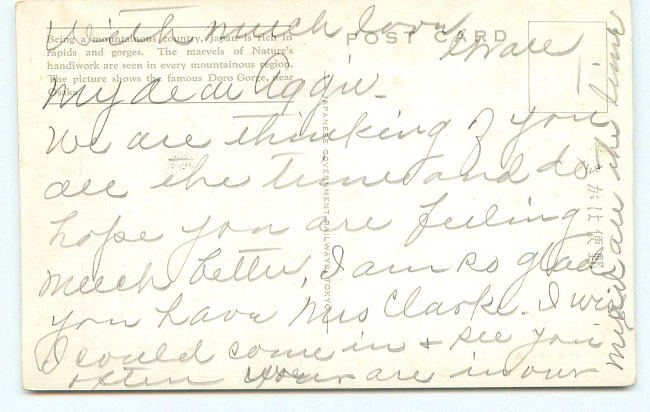 With much love
Grace
POST CARD
Being a mountainous country, Japan is rich in
rapids and gorges. The marvels of Nature's
handiwork are seen in every mountainous region.
The picture shows the famous Doro Gorge, near
Osaka.
My dear Aggie -
We are thinking of you
all the time and do
hope you are feeling
much better, I am so glad
you have Mrs Clarke. I wish
I could come in & see you
often you are in our
mind all the time
JAPANESE GOVERNMENT RAILWAYS TOKYO
きかは便郵